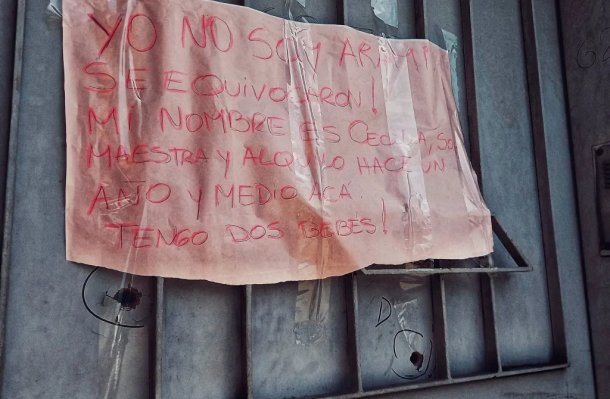 YO NO SOY ARAMI
SE EQUIVOCARON!
MI NOMBRE ES CECILIA, SOY
MAESTRA Y ALQUILO HACE UN
AÑO Y MEDIO ACÁ.
TENGO DOS BEBES!
D